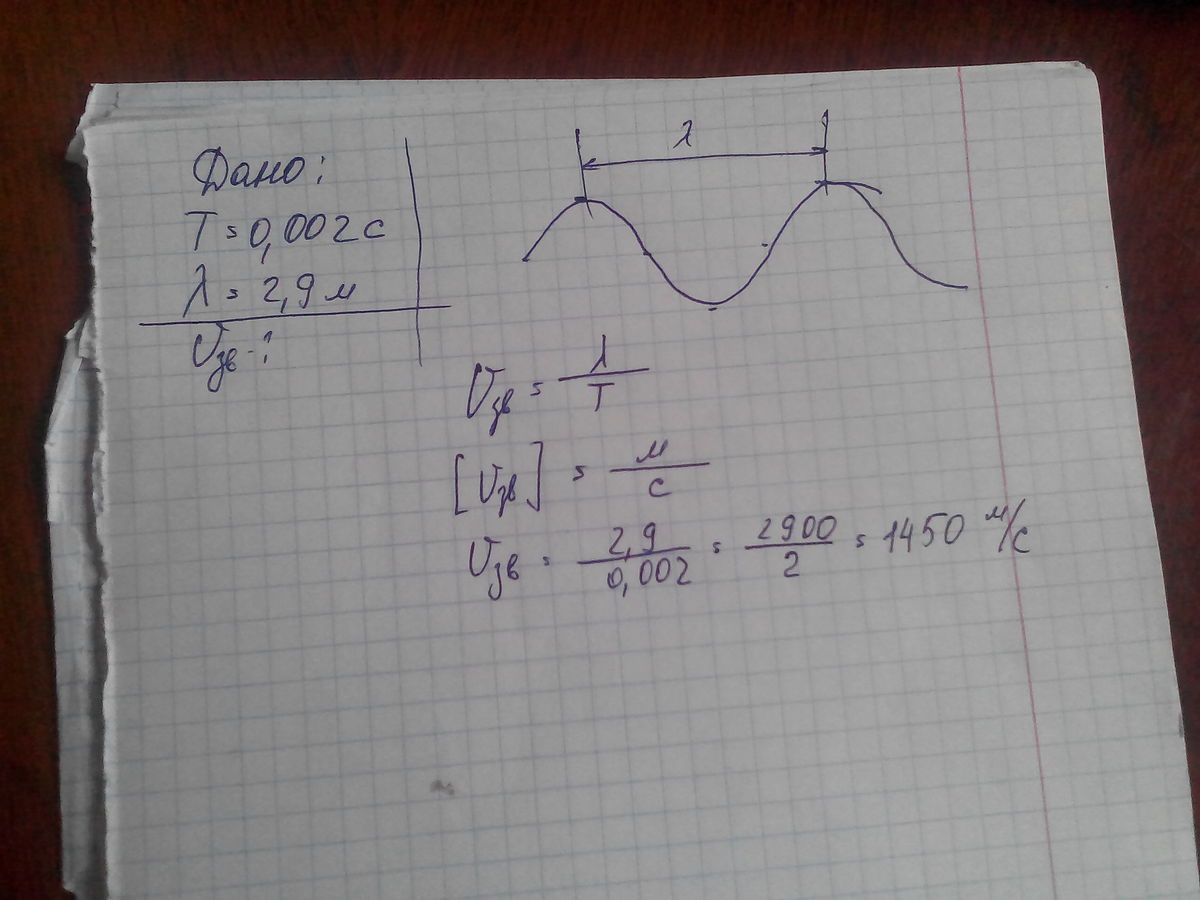 Дано:
T = 0,002 с
λ = 2,9 м
υзв - ?
λ
υзв = λ/T
[υзв] = м/с
υзв = 2,9/0,002 = 2900/2 = 1450 м/с